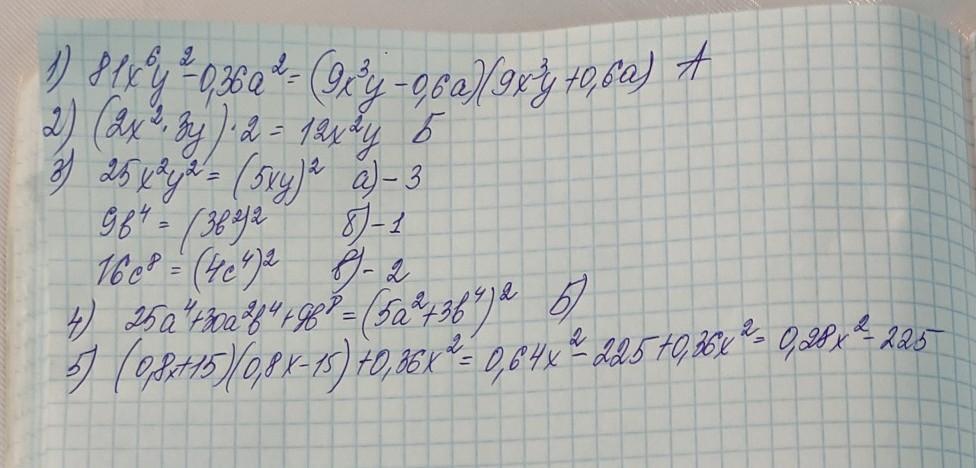 1) 81x⁶y²-0,36a² = (9x³y-0,6a)(9x³y+0,6a) А
2) (2x²·3y)·2 = 12x²y Б
3) 25x²y² = (5xy)² а)-3
9b⁴ = (3b²)² б)-1
16c⁸ = (4c⁴)² в)-2
4) 25a⁴+30a²b⁴+9b⁸ = (5a²+3b⁴)² Б)
5) (0,8x+15)(0,8x-15)+0,36x² = 0,64x²-225+0,36x² = 0,28x²-225